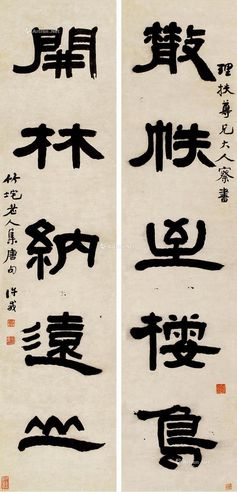 理扶尊兄大人察書
散帙至棲鳥
開林納遠山
竹垞老人集唐句